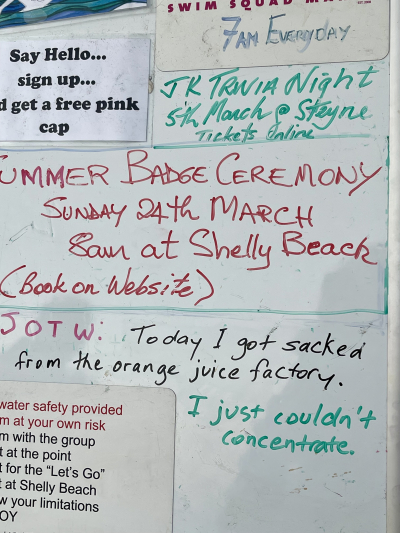 SWIM SQUAD
7AM EVERYDAY
Say Hello...
sign up...
get a free pink
cap
JK TRIVIA Night
5th March @ Steyne
Tickets Online
SUMMER BADGE CEREMONY
SUNDAY 24th MARCH
8am at Shelly Beach
(Book on Website)
JOTW: Today I got sacked
from the orange juice factory.
I just couldn't
concentrate.
water safety provided
at your own risk
with the group
at the point
for the "Let's Go"
at Shelly Beach
your limitations